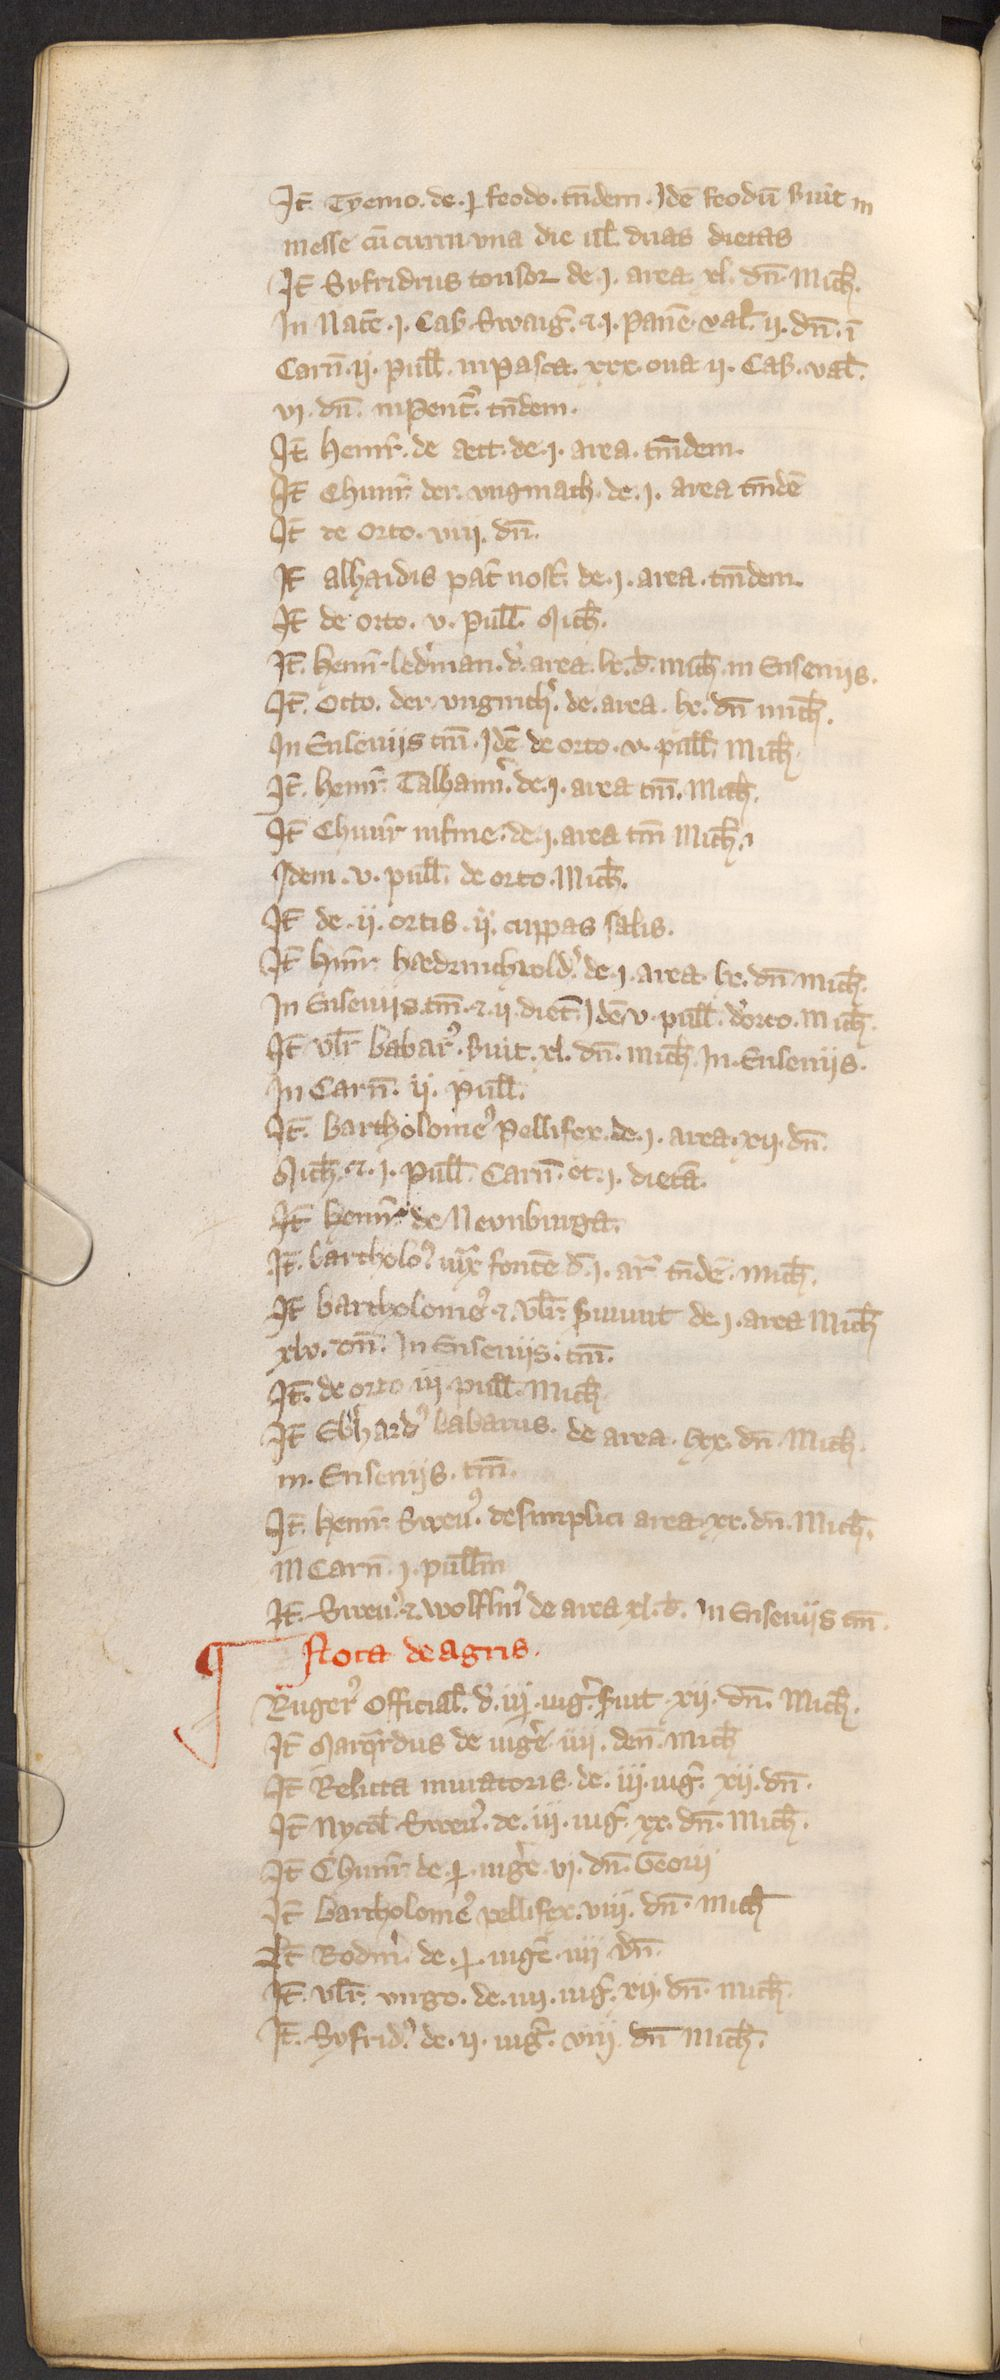 It̄. Tyemo. de. ꝓ feodo. tn̄dem. Idē feodū ẜuit in
messe cū curru vna die ul̄. duas dietas
It̄ Syfridus tonsor de. j. area xl. dn̄. Mich̄.
In Natē. j. Cas. Swaiḡ. ⁊. j. Panē. val̄. ij. dn̄. ī
Carn̄. ij. pull̄. in pasca. xxx. oua ii. Cas. val̄.
vj. dn̄. in Pent̄. tn̄dem.
It̄ Heinr̄. de de. j. area. tm̄dem.
It̄ Chunr̄ der. vngmach. de. j. area tm̄dē
It̄ de orto. viij. dn̄.
It̄ alhaidis pat̄ nost̄. de. j. area. tm̄dem.
It̄ de orto. v. pull̄. Mich̄.
It̄. Heinr̄. led̓man. d̓. area. lx. d̄. mich̄. in Enseniis.
It̄. Otto. der. vngmch̓. de. area. lx. dn̄ mich̄.
In Enseniis tm̄. Idē de orto. v. pull̄. Mich̄.
It̄. Heinr̄. Talham̓. de. j. area tm̄. Mich̄.
It̄ Chunr̄ in fine. de. j. area tm̄ Mich̄.
Idem. v. pull̄. de orto. Mich̄.
It̄ de. ii. ortis. ij. cuppas salis.
It̄ Hinr̄. de. j. area. lx. dn̄ mich̄.
In Enseniis. tm̄. ⁊. ij. diet̄. Idē v. pull̄. d̓ orto. Mich̄.
It̄ vlr̄ babar̓. ẜuit. xl. dn̄. mich̄. In. Enseniis.
In Carn̄. ij. pull̄.
It̄. Bartholome᷒ Pellifex. de. j. area. xij. dn̄.
Mich̄. ⁊. j. pull̄. Carn̄. et. j. dietā.
It̄ Heinr̄. de Neunburga.
It̄. bartholo᷒ iux̄ fontē d̄. j. ar̄ tn̄dē. mich̄.
It̄ bartholome᷒. ⁊. vlr̄. ẜuiunt de. j. area Mich̄
xlv. dn̄. In Enseniis. tm̄.
It̄. de orto iij. pull̄. Mich̄.
It̄ Eb̓hard᷒ babarus. de area. lxx. dn̄. Mich̄.
in. Enseniis. tm̄.
It̄. Heinr̄. Sweu᷒. de simplici area. xx. dn̄. Mich̄.
In Carn̄. j. pull̄m
It̄. Sweu᷒. ⁊. wolflin᷒ de area xl. d̄. In Enseniis tm̄.
¶ Nota de agris.
Ruger᷒ Official̄. d̓. iij. iug̓. ẜuit. xij. dn̄. Mich̄.
It̄ Marqrdus de iug̓e. iiij. den̄. Mich̄
It̄ Relicta de. iij. iug̓. xij. dn̄.
It̄ Nycol̄. Sweu᷒. de. iij. iug̓. xx. dn̄. Mich̄.
It̄ Chunr̄. de. ꝓ. iug̓e. vj. dn̄. Georii
It̄ bartholome᷒ pellifex. viij. dn̄. Mich̄
It̄ Rodin̓. de. ꝓ. iug̓e. iiij dn̄.
It̄. vlr̄. virgo. de. iiij. iug̓. xij. dn̄. mich̄.
It̄. Syfrid᷒. de. ij. iug̓. viij. dn̄ Mich̄.